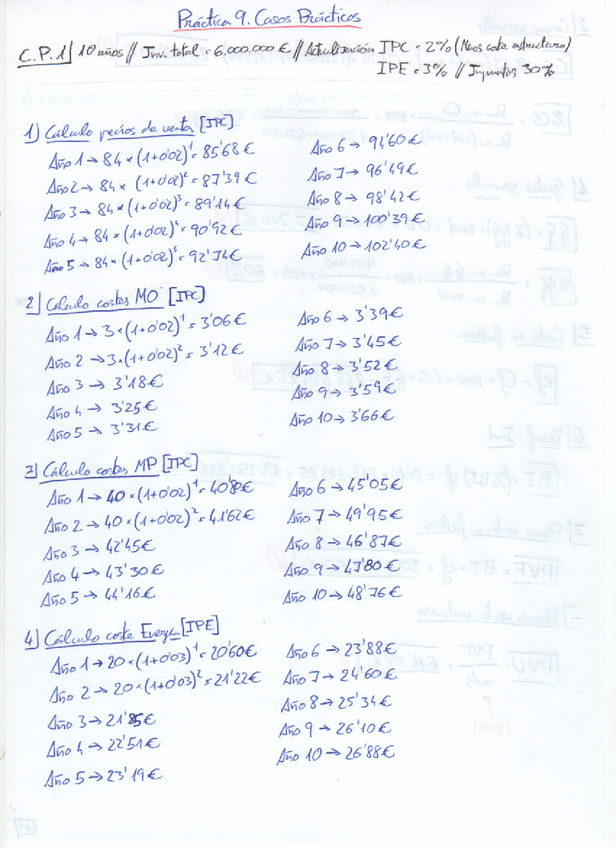 Práctica 9. Casos Prácticos
C.P.1) 10 años // Inv. total = 6.000.000 € // Actualización IPC = 2% (Menos coste estructura)
IPE = 3% // Impuestos 30%
1) Cálculo precios de venta [IPC]
Año 1 → 84 × (1+0'02)¹ = 85'68 €
Año 2 → 84 × (1+0'02)² = 87'39 €
Año 3 → 84 × (1+0'02)³ = 89'14 €
Año 4 → 84 × (1+0'02)⁴ = 90'92 €
Año 5 → 84 × (1+0'02)⁵ = 92'74 €
Año 6 → 94'60 €
Año 7 → 96'49 €
Año 8 → 98'42 €
Año 9 → 100'39 €
Año 10 → 102'40 €
2) Cálculo costes MO [IPC]
Año 1 → 3 × (1+0'02)¹ = 3'06 €
Año 2 → 3 × (1+0'02)² = 3'12 €
Año 3 → 3'18 €
Año 4 → 3'25 €
Año 5 → 3'31 €
Año 6 → 3'39 €
Año 7 → 3'45 €
Año 8 → 3'52 €
Año 9 → 3'59 €
Año 10 → 3'66 €
3) Cálculo costes MP [IPC]
Año 1 → 40 × (1+0'02)¹ = 40'8 €
Año 2 → 40 × (1+0'02)² = 41'62 €
Año 3 → 42'45 €
Año 4 → 43'30 €
Año 5 → 44'16 €
Año 6 → 45'05 €
Año 7 → 49'95 €
Año 8 → 46'87 €
Año 9 → 47'80 €
Año 10 → 48'76 €
4) Cálculo coste Energía [IPE]
Año 1 → 20 × (1+0'03)¹ = 20'60 €
Año 2 → 20 × (1+0'03)² = 21'22 €
Año 3 → 21'85 €
Año 4 → 22'51 €
Año 5 → 23'19 €
Año 6 → 23'88 €
Año 7 → 24'60 €
Año 8 → 25'34 €
Año 9 → 26'10 €
Año 10 → 26'88 €